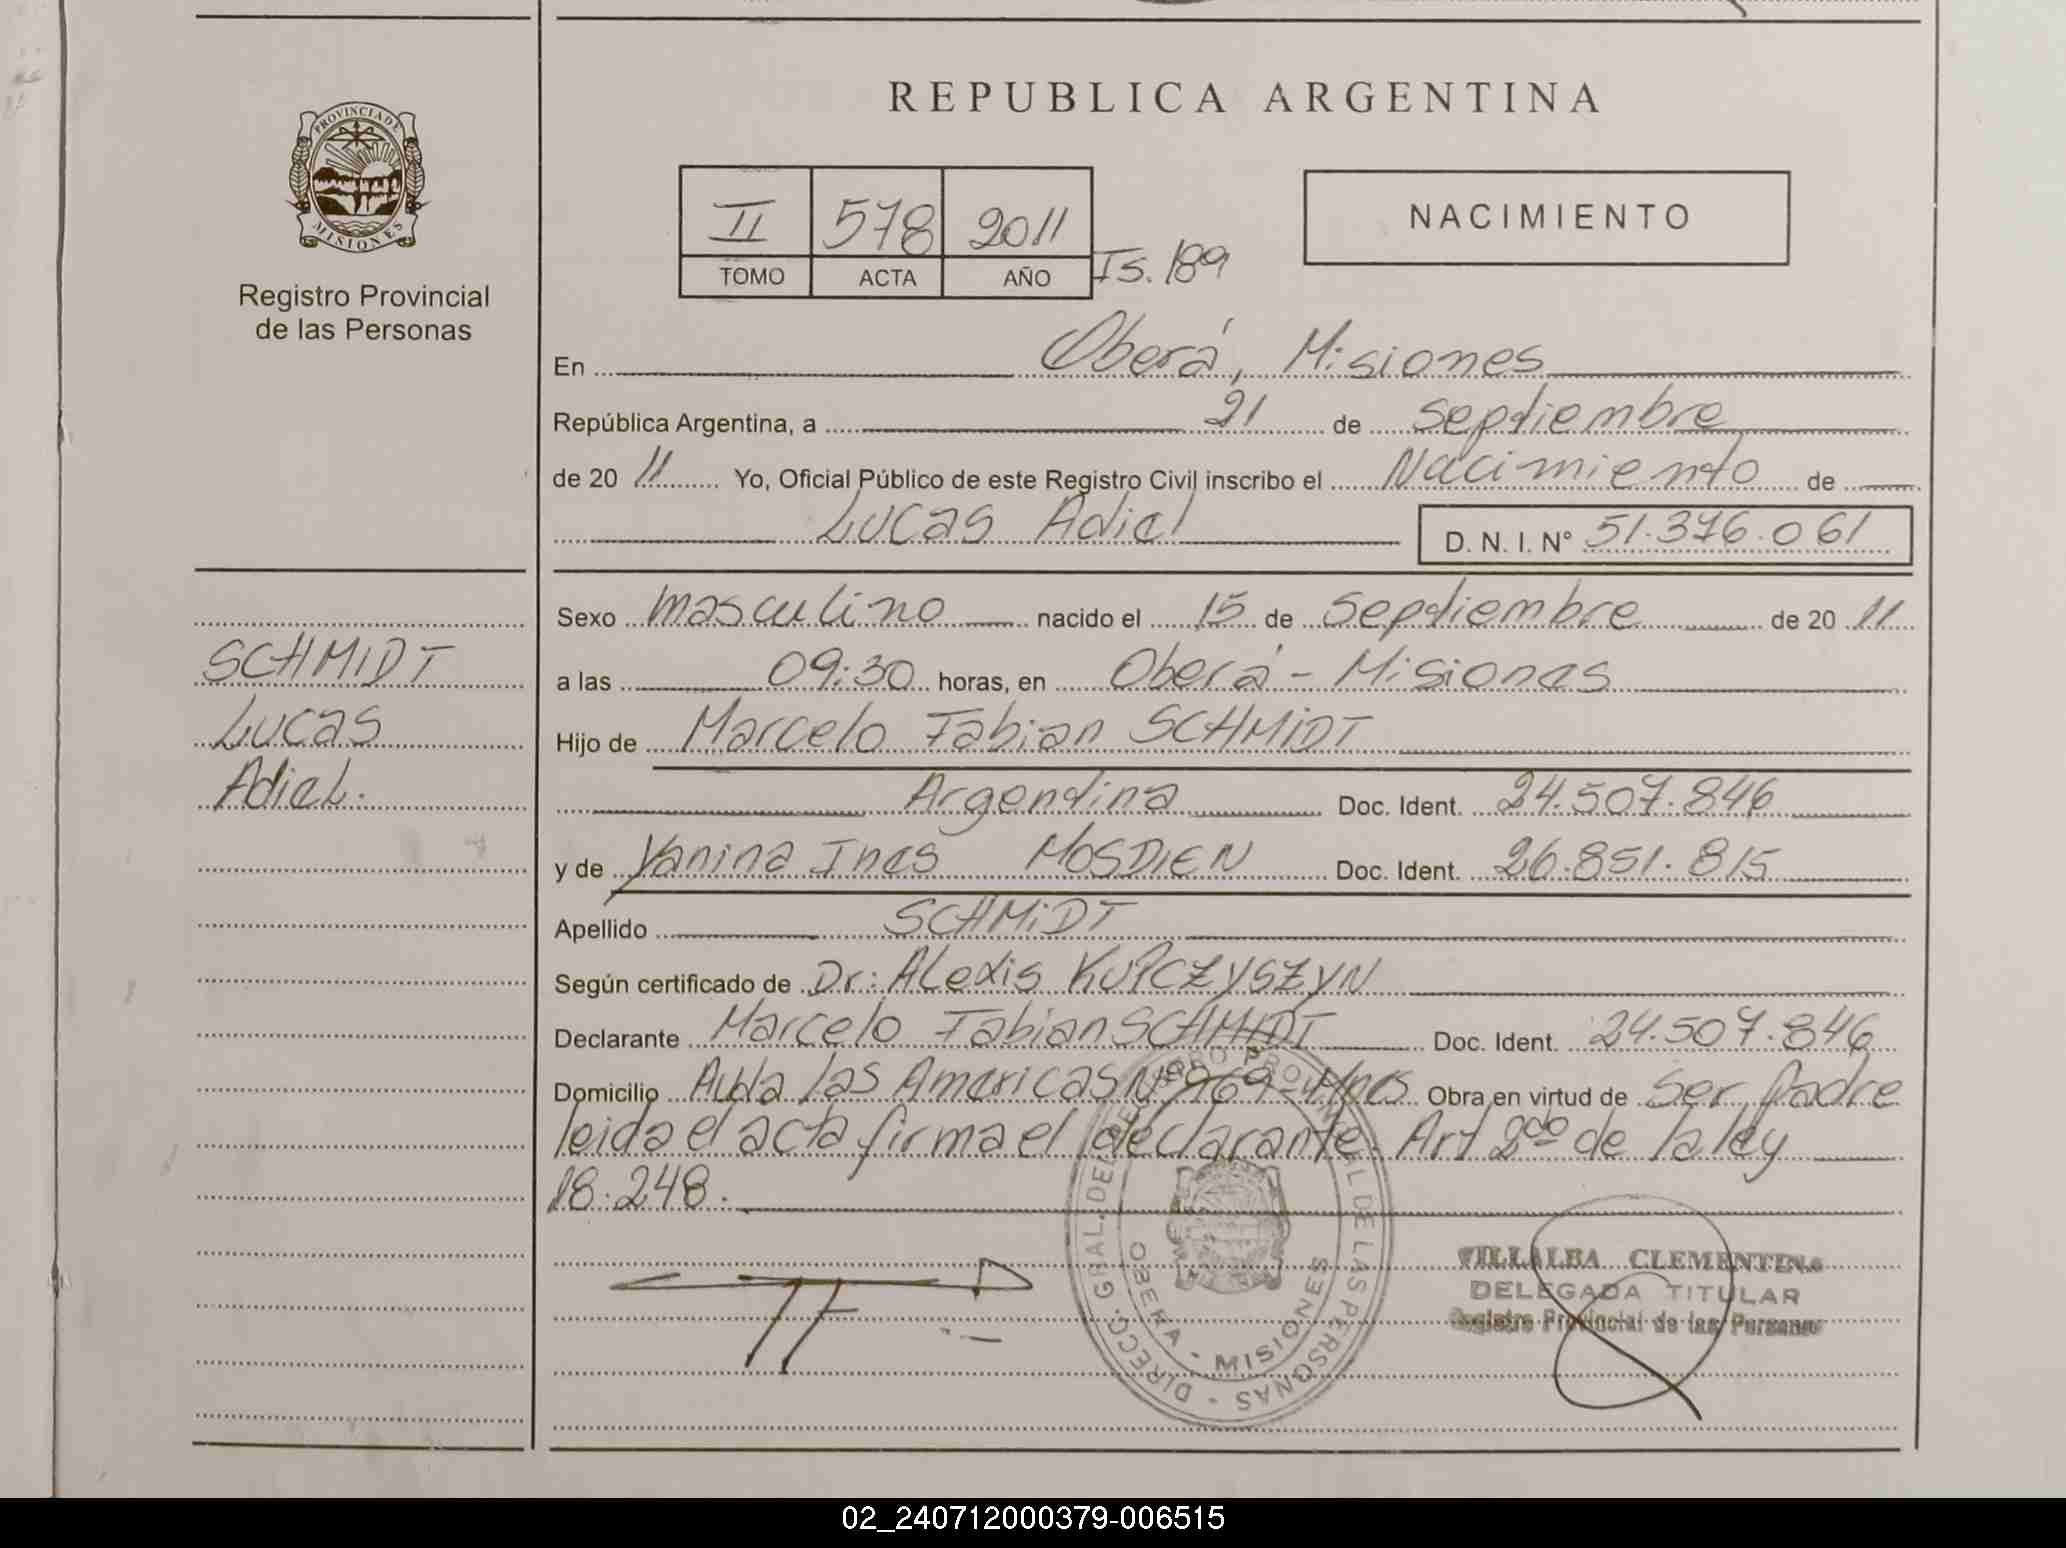 REPUBLICA ARGENTINA
PROVINCIA DE
MISIONES
Registro Provincial
de las Personas
II 578 2011
TOMO ACTA AÑO Fs. 189
NACIMIENTO
En Oberá, Misiones
República Argentina, a 21 de Septiembre
de 20 11 Yo, Oficial Público de este Registro Civil inscribo el Nacimiento de
Lucas Adiel D. N. I. Nº 51.376.061
Sexo masculino nacido el 15 de Septiembre de 20 11
a las 09:30 horas, en Oberá - Misiones
Hijo de Marcelo Fabian SCHMIDT
Argentina Doc. Ident. 24.507.846
y de Yanina Ines MOSDIEN Doc. Ident. 26.851.815
Apellido SCHMIDT
Según certificado de Dr: Alexis KUPCZYSZYN
Declarante Marcelo Fabian SCHMIDT Doc. Ident. 24.507.846
Domicilio Avda las Americas Nº 969 - Mnes Obra en virtud de Ser Padre
leida el acta firma el declarante. Art 2do de la ley
18.248.
SCHMIDT
Lucas
Adiel.
DIRECC. GRAL. DEL REGISTRO PROVINCIAL DE LAS PERSONAS
OBERA - MISIONES
VILLALBA CLEMENTINA
DELEGADA TITULAR
Registro Provincial de las Personas
02_240712000379-006515